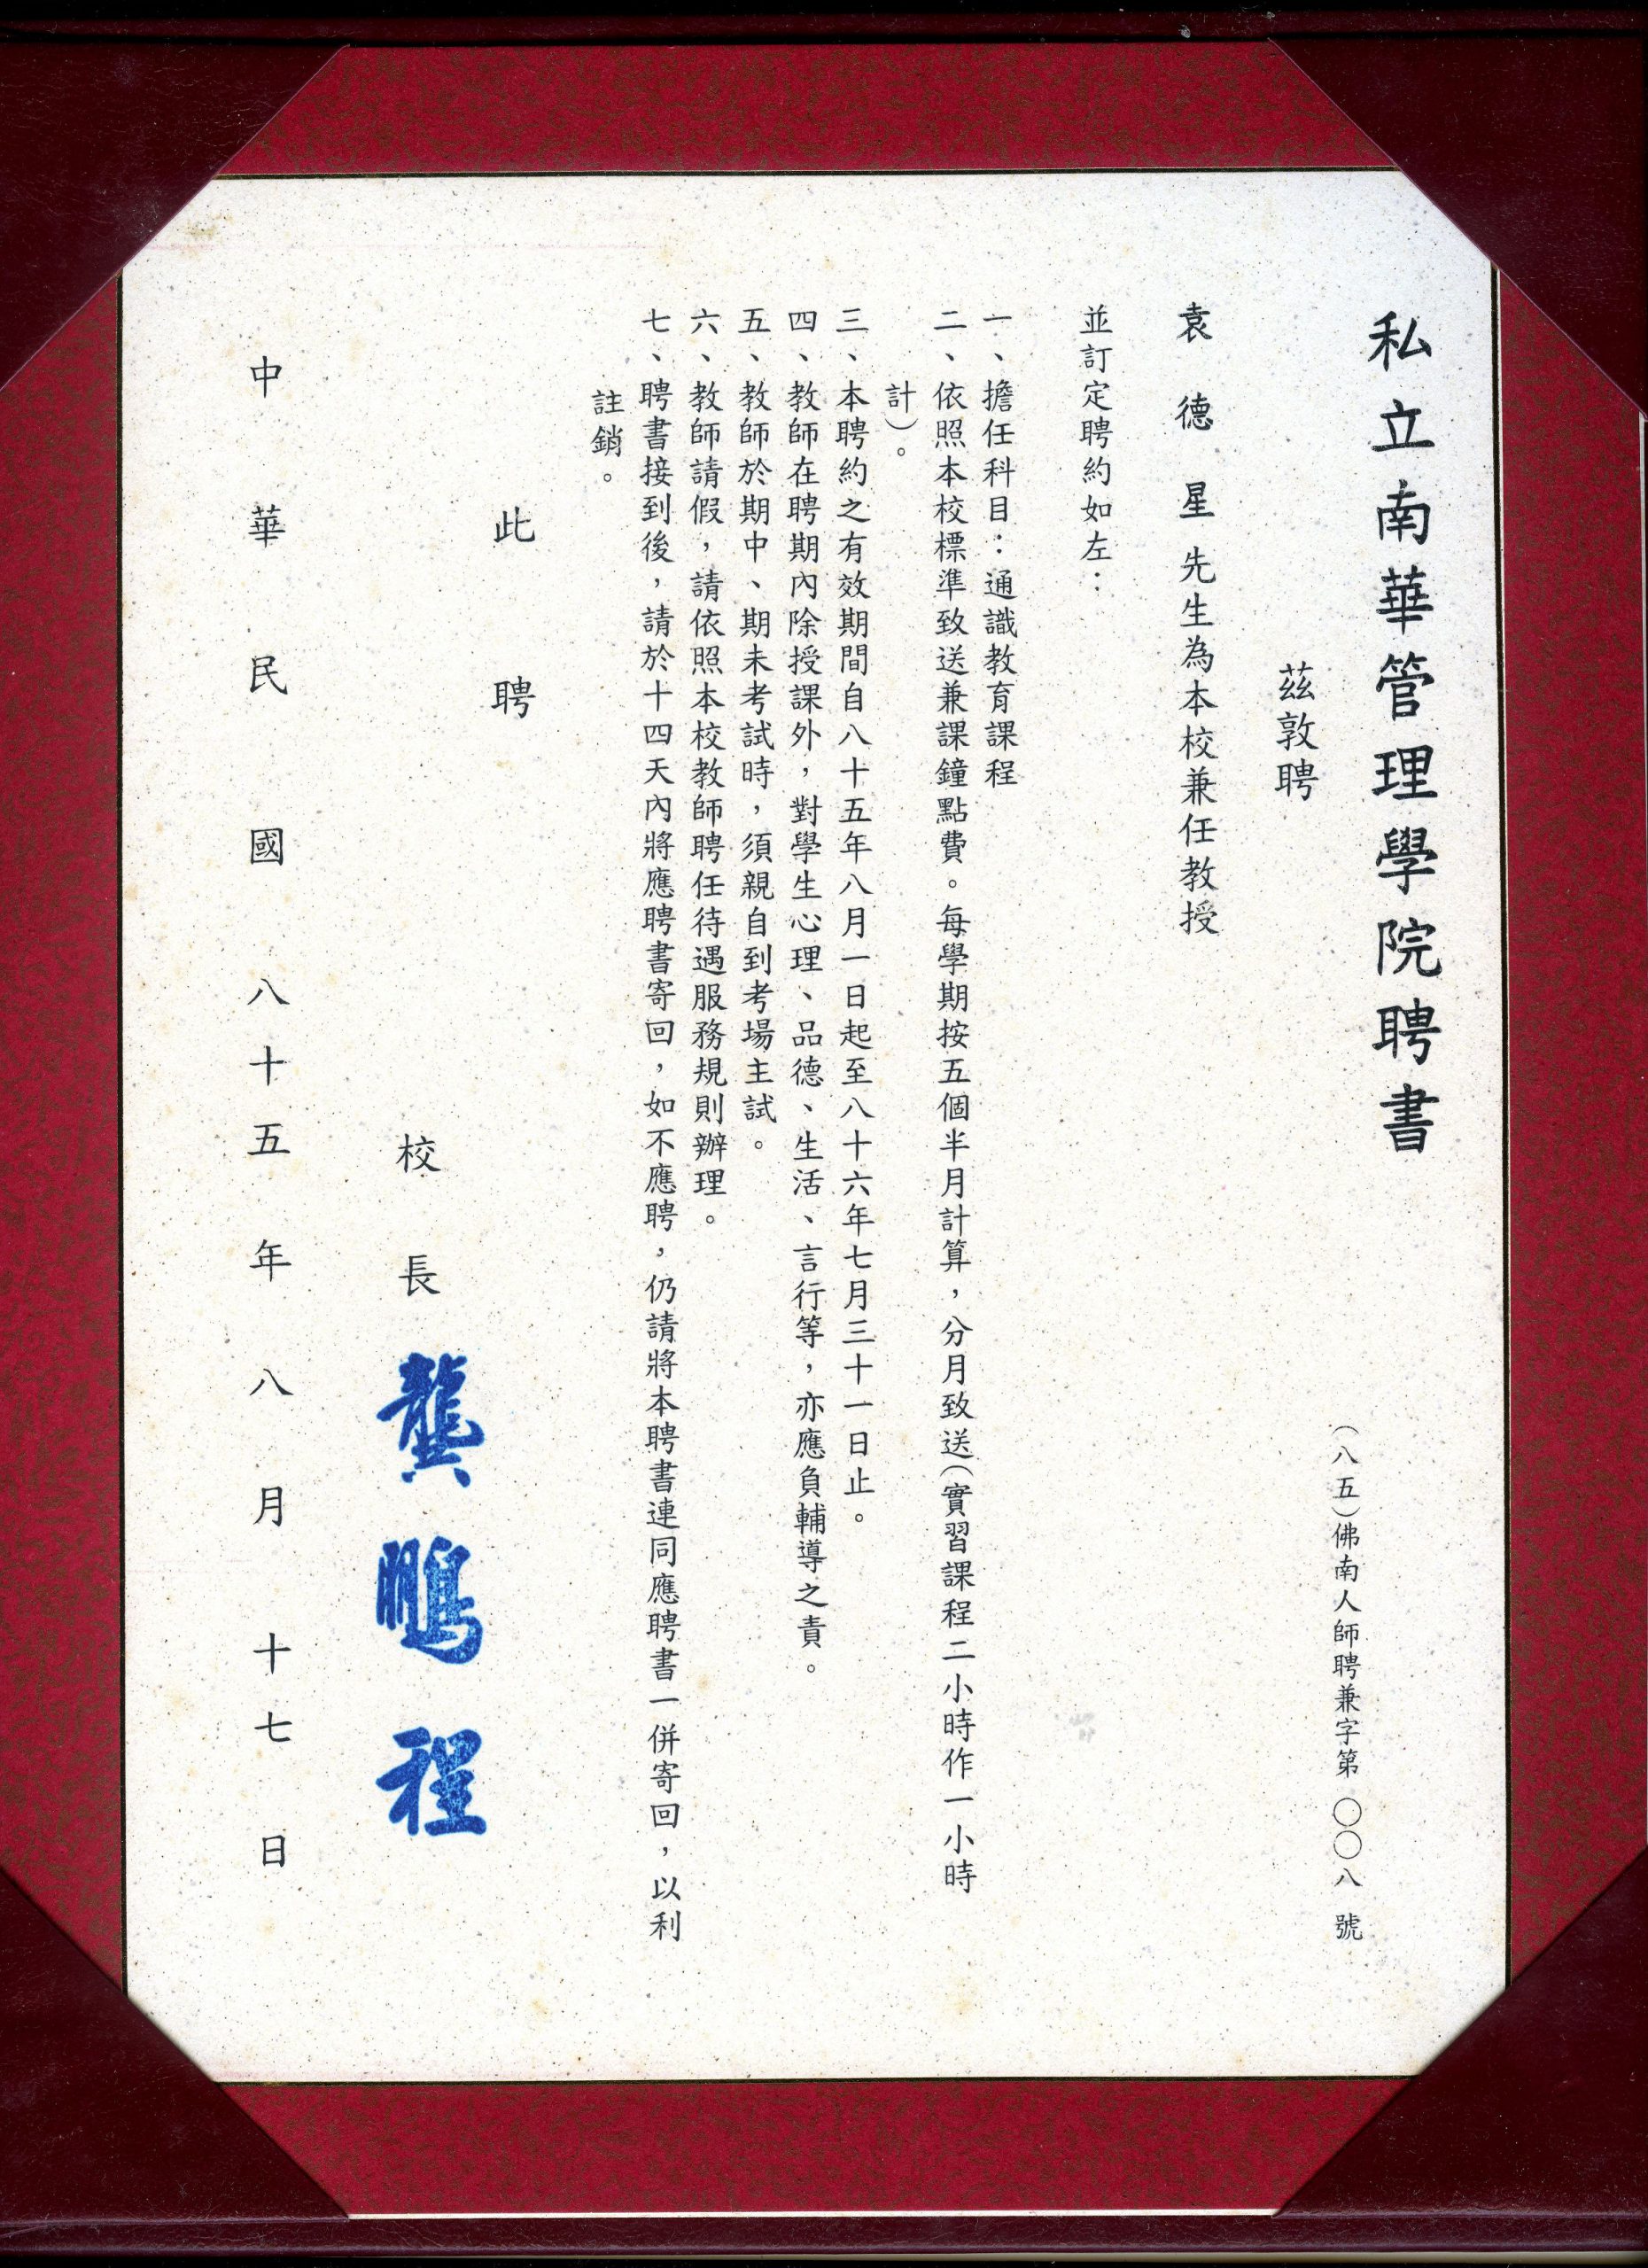 私立南華管理學院聘書
（八五）佛南人師聘兼字第 〇〇八 號
茲敦聘
袁德星先生為本校兼任教授
並訂定聘約如左：
一、擔任科目：通識教育課程
二、依照本校標準致送兼課鐘點費。每學期按五個半月計算，分月致送（實習課程二小時作一小時
計）。
三、本聘約之有效期間自八十五年八月一日起至八十六年七月三十一日止。
四、教師在聘期內除授課外，對學生心理、品德、生活、言行等，亦應負輔導之責。
五、教師於期中、期未考試時，須親自到考場主試。
六、教師請假，請依照本校教師聘任待遇服務規則辦理。
七、聘書接到後，請於十四天內將應聘書寄回，如不應聘，仍請將本聘書連同應聘書一併寄回，以利
註銷。
此聘
校長 龔鵬程
中華民國八十五年八月十七日